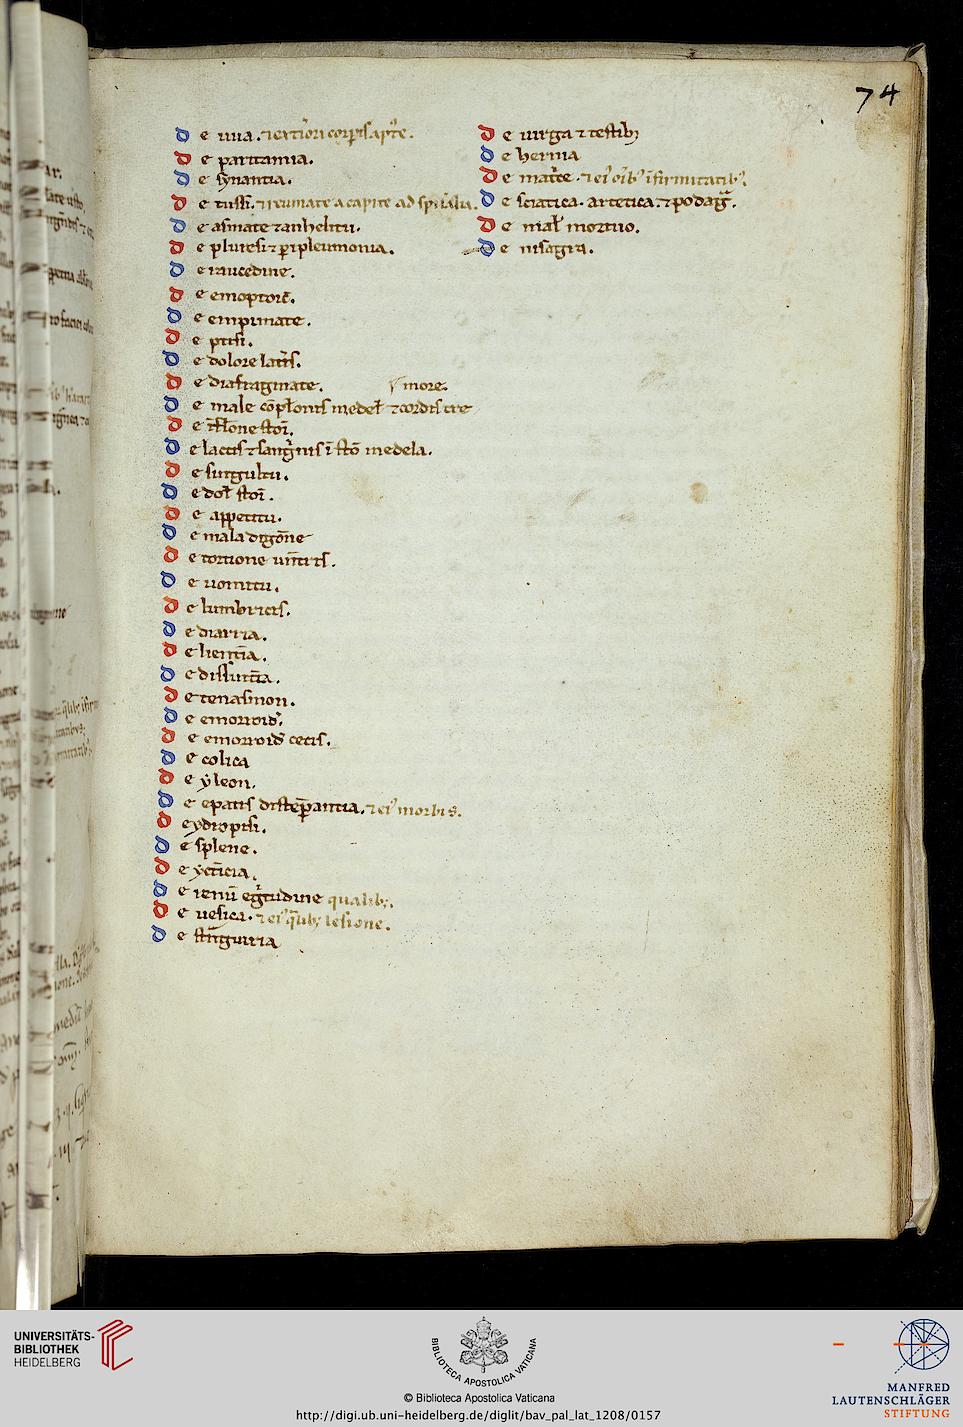 74
De uua. ⁊ ext'iori corp̄is apt'e.
De paritamia.
De synantia.
De tussi. ⁊ reumate a capite ad sp̄ualia.
De asmate ⁊ anhelitu.
De pluresi ⁊ peripleumonia.
De raucedine.
De emoptoic̄.
De empimate.
De ptisi.
De dolore lat'is.
De diafragmate.
more.
De male cōpl'onis medel' ⁊ cordis tre
De īfl'one stōi.
De lactis ⁊ sang'nis ī stō medela.
De singultu.
De dol' stōi.
De appetitu.
De mala digōne
De tortione uentris.
De uomitu.
De lumbricis.
De diarria.
De lient̄ia.
De dissint̄ia.
De tenasmon.
De emorroid'.
De emorroid' cecis.
De colica
De yleon.
De epatis distep̄antia. ⁊ ei' morbis.
De ydropisi.
De splene.
De yct̄icia.
De renū eg'tudine qualib;.
De uesica. ⁊ ei' q̄lib; lesione.
De st̄nguiria
De uirga ⁊ testib;
De hernia
De mat'ce. ⁊ ei' oīb' īfirmitatib'.
De sciatica. artetica. ⁊ podag̃.
De mal' mortuo.
De nisagra.
UNIVERSITÄTS-
BIBLIOTHEK
HEIDELBERG
BIBLIOTECA APOSTOLICA VATICANA
© Biblioteca Apostolica Vaticana
http://digi.ub.uni-heidelberg.de/diglit/bav_pal_lat_1208/0157
MANFRED
LAUTENSCHLÄGER
STIFTUNG